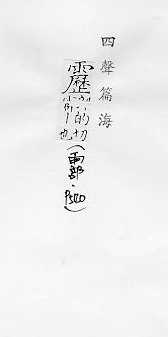 四聲篇海
靂
的切
也
(雨部, P540)